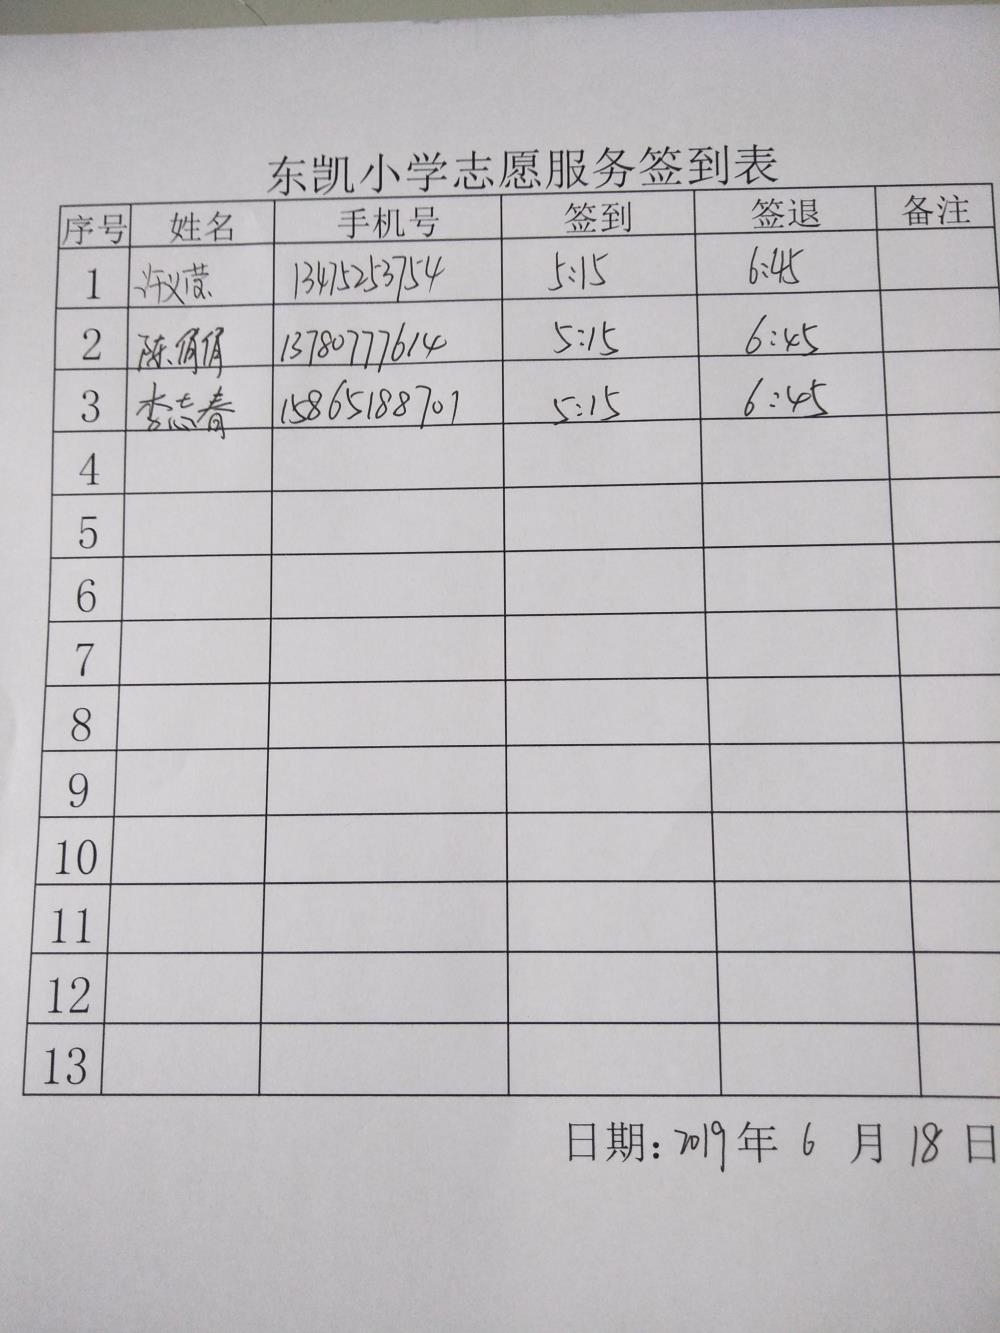 东凯小学志愿服务签到表
序号 姓名 手机号 签到 签退 备注
1 许义蒙 13475253754 5:15 6:45
2 陈俏俏 13780777614 5:15 6:45
3 李志春 15865188701 5:15 6:45
4
5
6
7
8
9
10
11
12
13
日期: 2019年 6 月 18 日